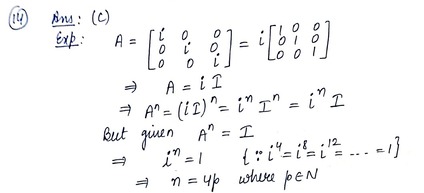 (14) Ans: (C)
Exp: A = [i 0 0; 0 i 0; 0 0 i] = i [1 0 0; 0 1 0; 0 0 1]
⇒ A = i I
⇒ Aⁿ = (iI)ⁿ = iⁿ Iⁿ = iⁿ I
But given Aⁿ = I
⇒ iⁿ = 1 {∵ i⁴ = i⁸ = i¹² = ---- = 1}
⇒ n = 4p where p∈N